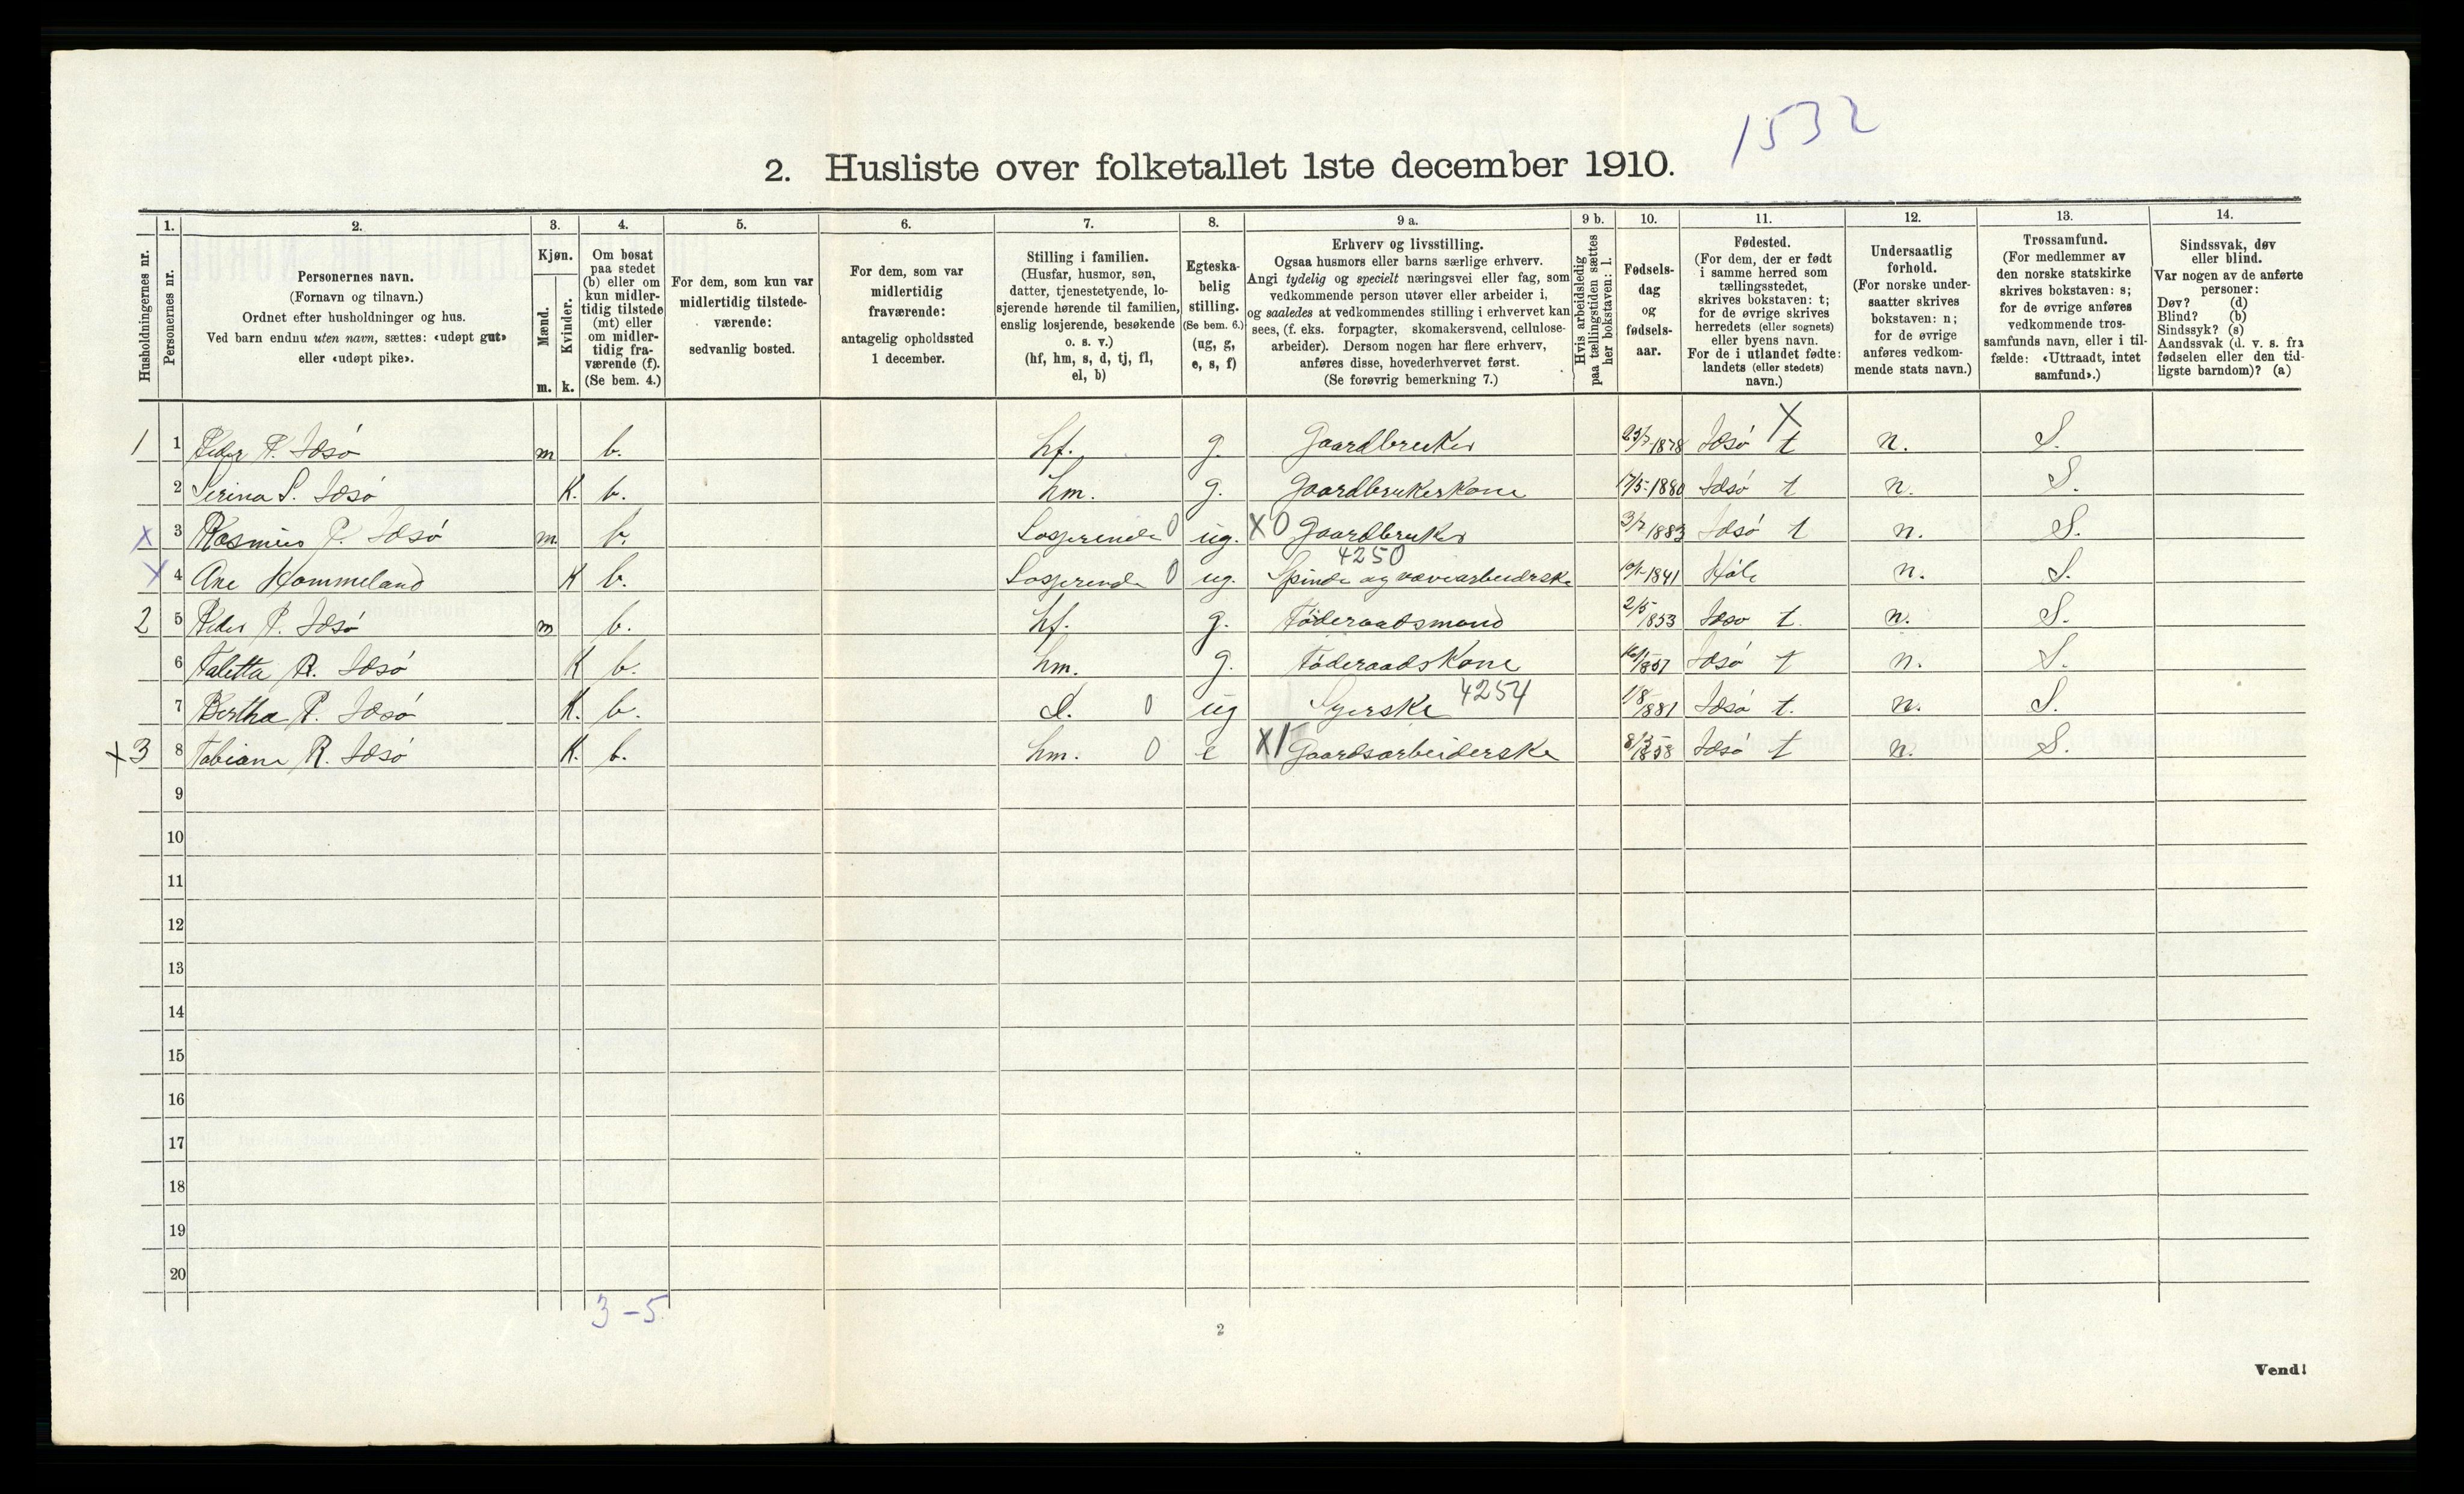 1532
2. Husliste over folketallet 1ste december 1910.
Husholdningernes nr.
1.
Personernes nr.
2.
Personernes navn.
(Fornavn og tilnavn.)
Ordnet efter husholdninger og hus.
Ved barn endnu uten navn, sættes: «udøpt gut»
eller «udøpt pike».
3.
Kjøn.
Mænd.
m.
Kvinder.
k.
4.
Om bosat
paa stedet
(b) eller om
kun midler-
tidig tilstede
(mt) eller
om midler-
tidig fra-
værende (f).
(Se bem. 4.)
5.
For dem, som kun var
midlertidig tilstede-
værende:
sedvanlig bosted.
6.
For dem, som var
midlertidig
fraværende:
antagelig opholdssted
1 december.
7.
Stilling i familien.
(Husfar, husmor, søn,
datter, tjenestetyende, lo-
sjerende hørende til familien,
enslig losjerende, besøkende
o. s. v.)
(hf, hm, s, d, tj, fl,
el, b)
8.
Egteska-
belig
stilling.
(Se bem. 6.)
(ug, g,
e, s, f)
9 a.
Erhverv og livsstilling.
Ogsaa husmors eller barns særlige erhverv.
Angi tydelig og specielt næringsvei eller fag, som
vedkommende person utøver eller arbeider i,
og saaledes at vedkommendes stilling i erhvervet kan
sees, (f. eks. forpagter, skomakersvend, cellulose-
arbeider). Dersom nogen har flere erhverv,
anføres disse, hovederhvervet først.
(Se forøvrig bemerkning 7.)
9 b.
Hvis arbeidsledig
paa tællingstiden sættes
her bokstaven: l.
10.
Fødsels-
dag
og
fødsels-
aar.
11.
Fødested.
(For dem, der er født
i samme herred som
tællingsstedet,
skrives bokstaven: t;
for de øvrige skrives
herredets (eller sognets)
eller byens navn.
For de i utlandet fødte:
landets (eller stedets)
navn.)
12.
Undersaatlig
forhold.
(For norske under-
saatter skrives
bokstaven: n;
for de øvrige
anføres vedkom-
mende stats navn.)
13.
Trossamfund.
(For medlemmer av
den norske statskirke
skrives bokstaven: s;
for de øvrige anføres
vedkommende tros-
samfunds navn, eller i til-
fælde: «Uttraadt, intet
samfund».)
14.
Sindssvak, døv
eller blind.
Var nogen av de anførte
personer:
Døv? (d)
Blind? (b)
Sindssyk? (s)
Aandssvak (d. v. s. fra
fødselen eller den tid-
ligste barndom)? (a)
1 1 Peder P. Idsö m b. hf. g. Gaardbruker 23/7-1878 Idsö t X n. S.
2 Serina S. Idsö K. b. hm. g. Gaardbrukerkone 17/5-1880 Idsö t n. S.
X 3 Rasmus P. Idsö m b. Losjerende 0 ug. X0 Gaardbruker 3/7 1883 Idsö t n. S.
4250
X 4 Ane Hommeland K b. Losjerende 0 ug. Spinde og vævearbeiderske 1841 Höle n. S.
2 5 Peder P. Idsö m b. hf. g. Föderaadsmand 2/5 1853 Idsö t. n. S.
6 Taletta R. Idsö K b. hm. g. Föderaadskone 1857 Idsö t n. S.
7 Bertha P. Idsö K. b. d. 0 ug Syerske 4254 1881 Idsö t. n. S.
X3 8 Tobiane R. Idsö K. b. hm. 0 e X1 Gaardsarbeiderske 1858 Idsö t n. S.
9
10
11
12
13
14
15
16
17
18
19
20
3-5
2
Vend!